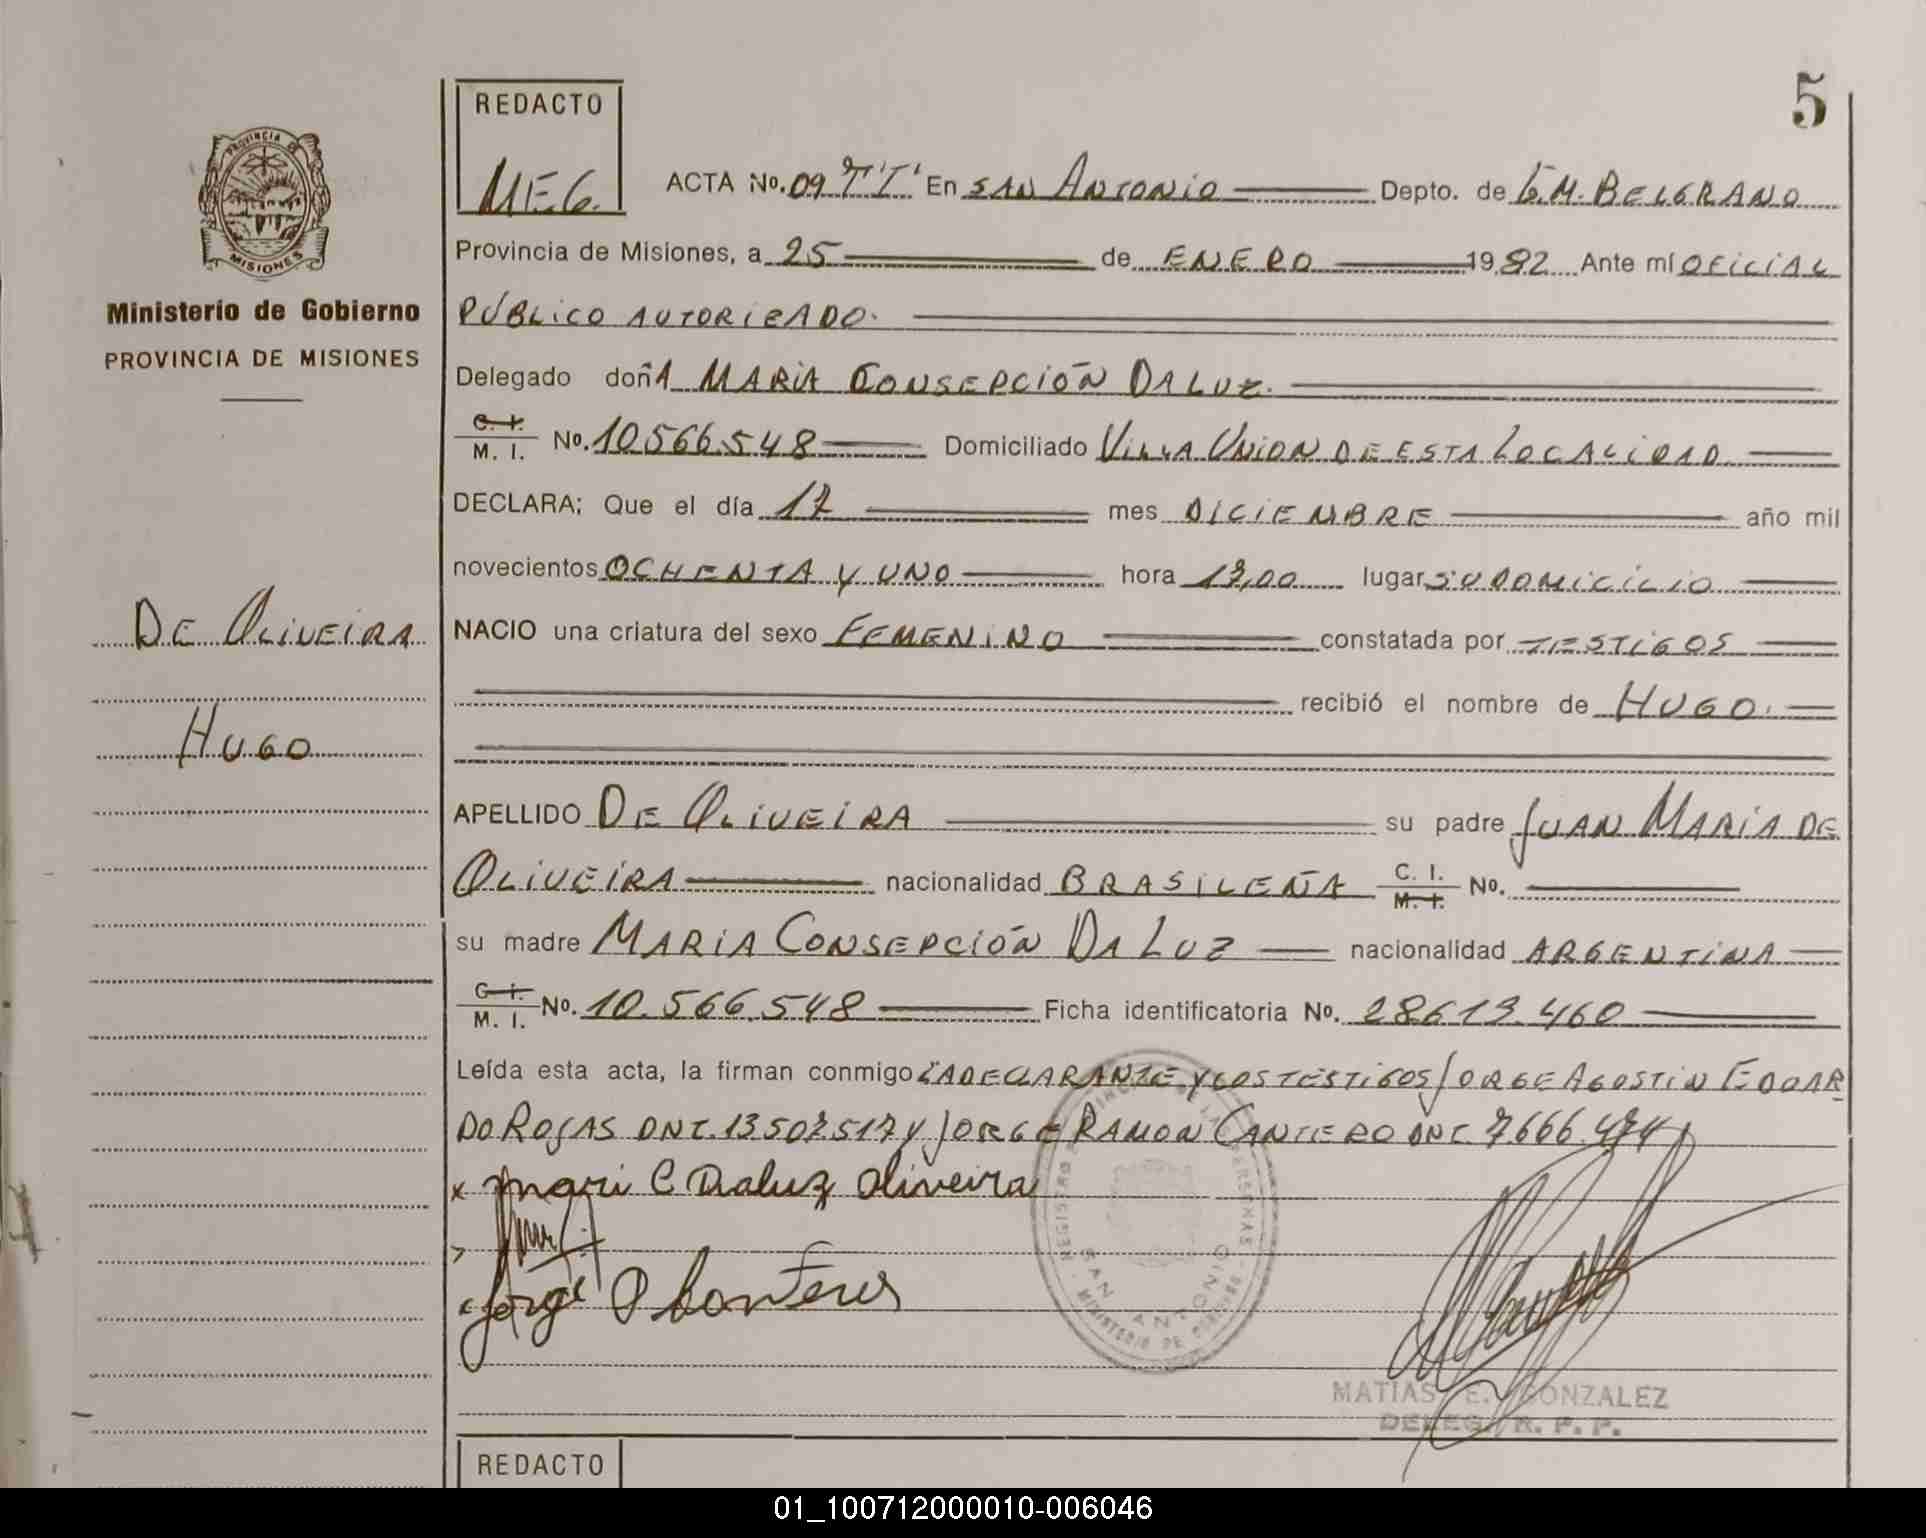 5
REDACTO
MEG.
ACTA No. 09 "T I" En SAN ANTONIO Depto. de G.M. BELGRANO
PROVINCIA DE
MISIONES
Provincia de Misiones, a 25 de ENERO 1982 Ante mí OFICIAL
Ministerio de Gobierno
PROVINCIA DE MISIONES
PÚBLICO AUTORIZADO.
Delegado doñA MARIA CONSEPCIÓN DA LUZ.
C. I.
M. I. No. 10.566.548 Domiciliado VILLA UNION DE ESTA LOCALIDAD
DECLARA; Que el día 17 mes DICIEMBRE año mil
novecientos OCHENTA Y UNO hora 13,00 lugar SU DOMICILIO
DE OLIVEIRA
NACIO una criatura del sexo FEMENINO constatada por TESTIGOS
recibió el nombre de HUGO.
HUGO
APELLIDO DE OLIVEIRA su padre JUAN MARIA DE
OLIVEIRA nacionalidad BRASILEÑA C. I. M. I. No.
su madre MARIA CONSEPCIÓN DA LUZ nacionalidad ARGENTINA
C. I.
M. I. No. 10.566.548 Ficha identificatoria No. 28613.460
Leída esta acta, la firman conmigo LA DECLARANTE Y LOS TESTIGOS JORGE AGOSTIN EDUAR
DO ROJAS DNI. 13507517 Y JORGE RAMON CANTERO DNI. 7.666.474
x mari C Daluz oliveira
Jorge
SAN ANTONIO
MINISTERIO DE GOBIERNO
MATIAS E. GONZALEZ
DELEG. R. P. P.
REDACTO
01_100712000010-006046